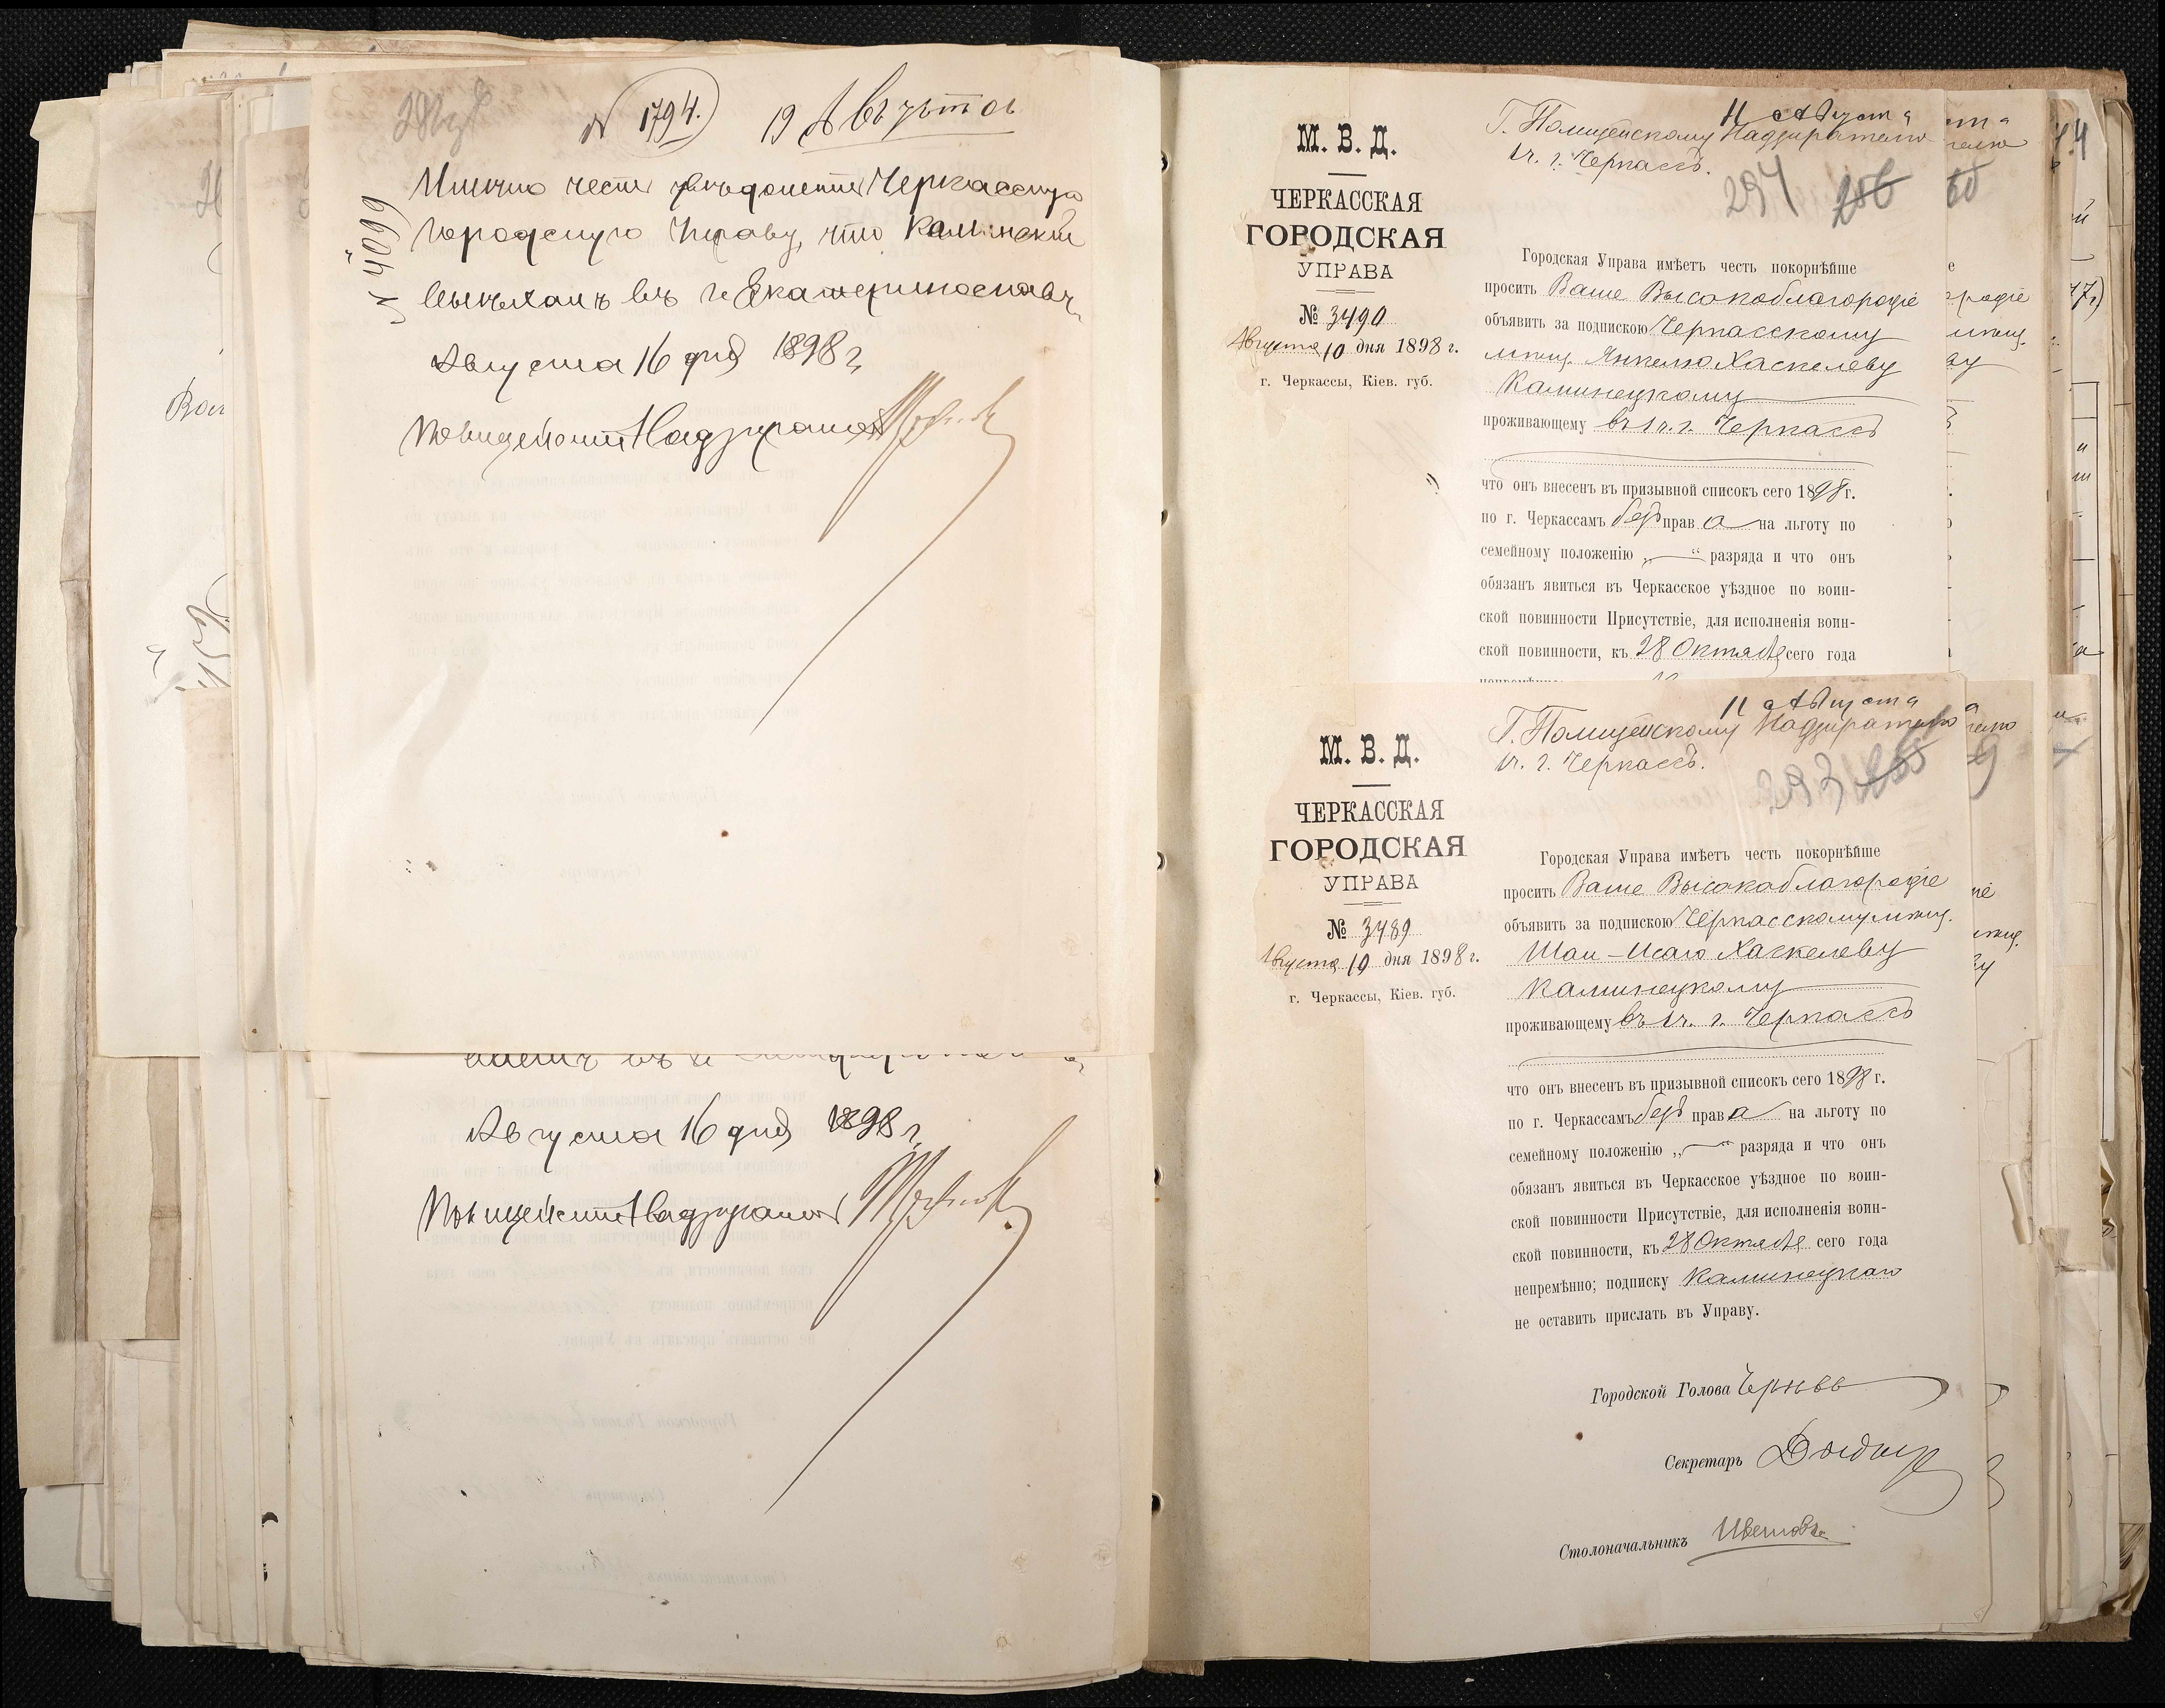 № 1794. 19 Августа
Имѣю честь увѣдомить Черкасскую
городскую Управу, что Каминскій
выѣхалъ въ г. Екатеринославъ
Августа 16 дня 1898 г.
Полицейскій Надзиратель
№ 4099
Августа 16 дня 1898 г.
Полицейскій Надзиратель
11 Августа
Г. Полицейскому Надзирателю
1 ч. г. Черкассъ.
294 286
М. В. Д.
ЧЕРКАССКАЯ
ГОРОДСКАЯ
УПРАВА
№ 3490
Августа 10 дня 1898 г.
г. Черкассы, Кіев. губ.
Городская Управа имѣетъ честь покорнѣйше
просить Ваше Высокоблагородіе
объявить за подпискою Черкасскому
мѣщ. Янкелю Хаскелеву
Каминецкому
проживающему въ 1 ч. г. Черкассъ
что онъ внесенъ въ призывной списокъ сего 1898 г.
по г. Черкассамъ безъ права на льготу по
семейному положенію „—“ разряда и что онъ
обязанъ явиться въ Черкасское уѣздное по воин-
ской повинности Присутствіе, для исполненія воин-
ской повинности, къ 28 Октября сего года
11 Августа
Г. Полицейскому Надзирателю
1 ч. г. Черкассъ.
293 285
М. В. Д.
ЧЕРКАССКАЯ
ГОРОДСКАЯ
УПРАВА
№ 3489
Августа 10 дня 1898 г.
г. Черкассы, Кіев. губ.
Городская Управа имѣетъ честь покорнѣйше
просить Ваше Высокоблагородіе
объявить за подпискою Черкасскому мѣщ.
Шаи-Исаю Хаскелеву
Каминецкому
проживающему въ 1 ч. г. Черкассъ
что онъ внесенъ въ призывной списокъ сего 1898 г.
по г. Черкассамъ безъ права на льготу по
семейному положенію „—“ разряда и что онъ
обязанъ явиться въ Черкасское уѣздное по воин-
ской повинности Присутствіе, для исполненія воин-
ской повинности, къ 28 Октября сего года
непремѣнно; подписку Каминецкаго
не оставить прислать въ Управу.
Городской Голова
Секретарь
Столоначальникъ Цвѣтковъ